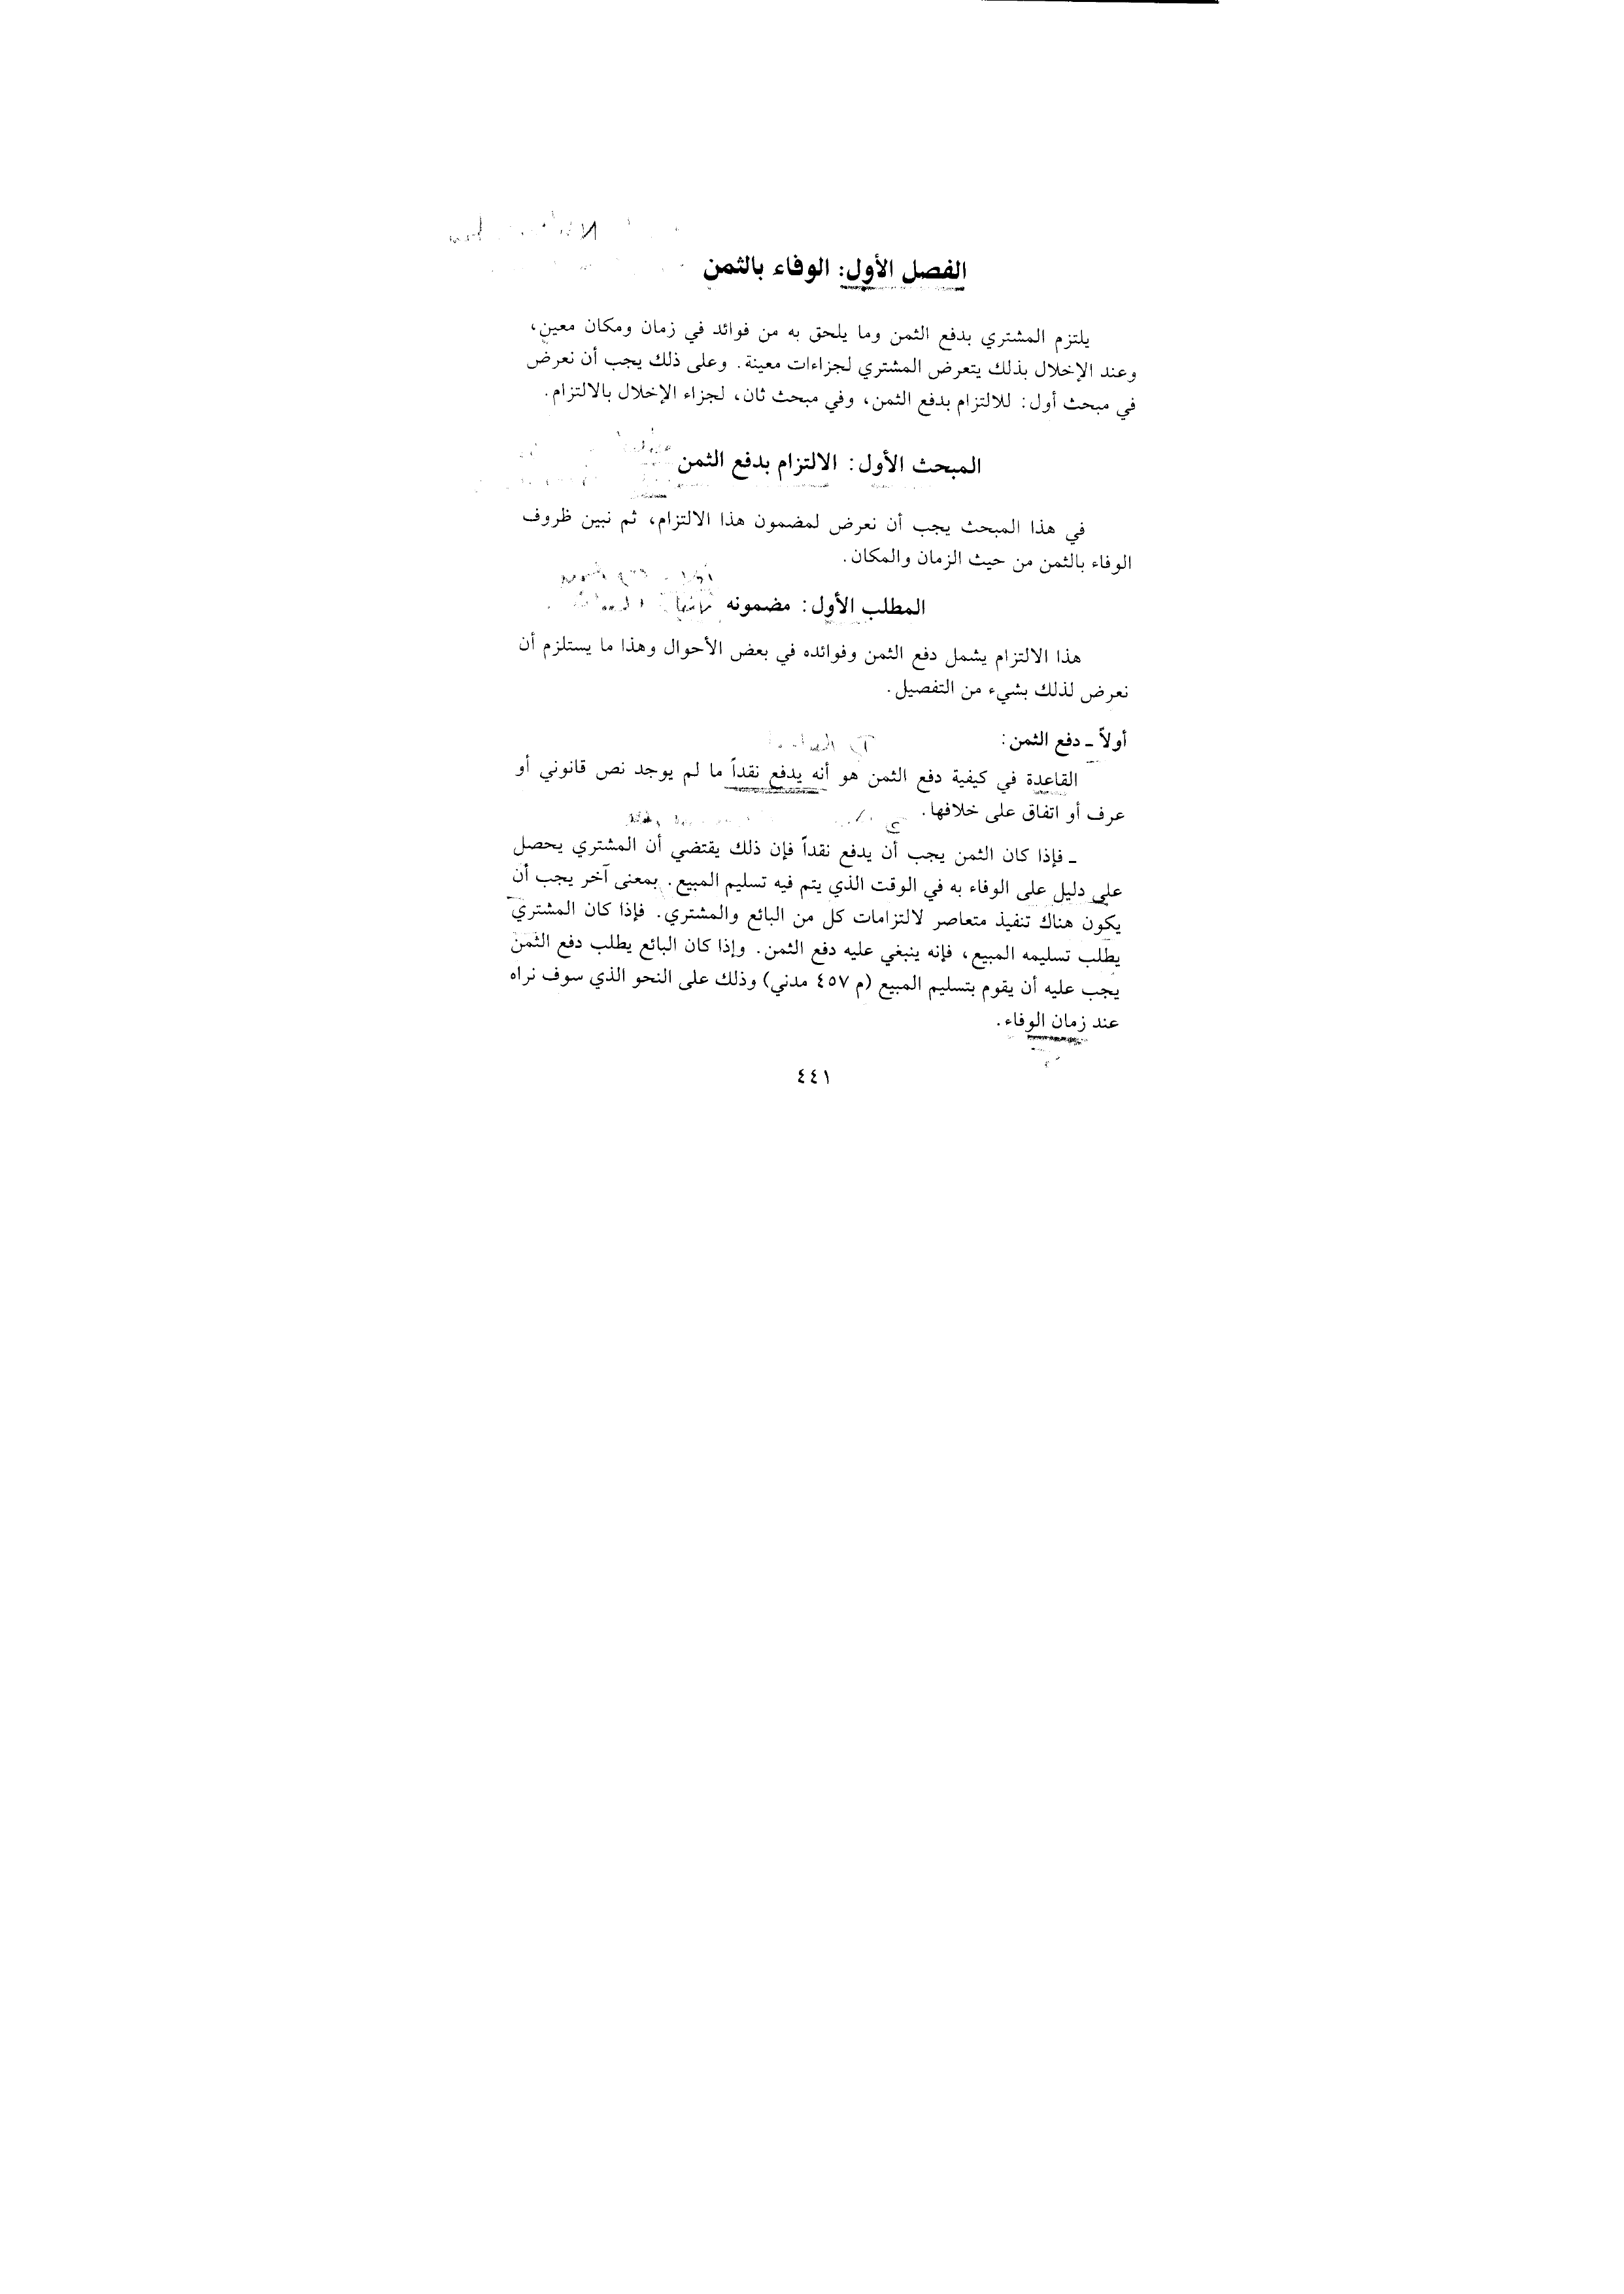 الفصل الأول: الوفاء بالثمن
يلتزم المشتري بدفع الثمن وما يلحق به من فوائد في زمان ومكان معين،
وعند الإخلال بذلك يتعرض المشتري لجزاءات معينة. وعلى ذلك يجب أن نعرض
في مبحث أول: للالتزام بدفع الثمن، وفي مبحث ثان، لجزاء الإخلال بالالتزام.
المبحث الأول: الالتزام بدفع الثمن
في هذا المبحث يجب أن نعرض لمضمون هذا الالتزام، ثم نبين ظروف
الوفاء بالثمن من حيث الزمان والمكان.
المطلب الأول: مضمونه
هذا الالتزام يشمل دفع الثمن وفوائده في بعض الأحوال وهذا ما يستلزم أن
نعرض لذلك بشيء من التفصيل.
أولاً ـ دفع الثمن:
القاعدة في كيفية دفع الثمن هو أنه يدفع نقداً ما لم يوجد نص قانوني أو
عرف أو اتفاق على خلافها.
ـ فإذا كان الثمن يجب أن يدفع نقداً فإن ذلك يقتضي أن المشتري يحصل
على دليل على الوفاء به في الوقت الذي يتم فيه تسليم المبيع. بمعنى آخر يجب أن
يكون هناك تنفيذ متعاصر لالتزامات كل من البائع والمشتري. فإذا كان المشتري
يطلب تسليمه المبيع، فإنه ينبغي عليه دفع الثمن. وإذا كان البائع يطلب دفع الثمن
يجب عليه أن يقوم بتسليم المبيع (م ٤٥٧ مدني) وذلك على النحو الذي سوف نراه
عند زمان الوفاء.
٤٤١